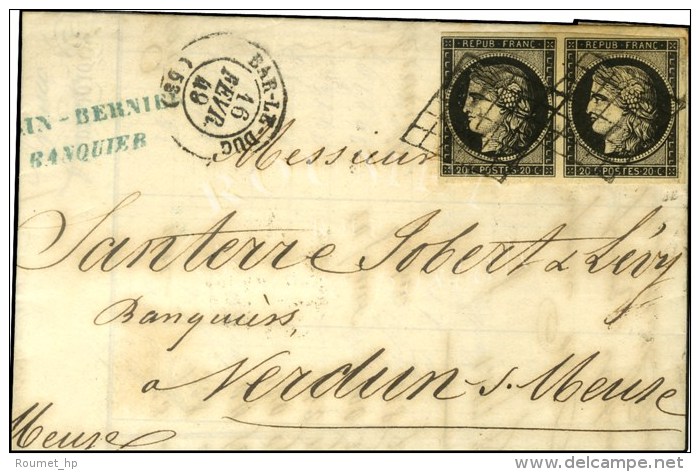 REPUB FRANC
REPUB FRANC
20 C POSTES 20 C
20 C POSTES 20 C
BAR-LE-DUC
16
FEVR.
49
(53)
AIN-BERNIER
BANQUIER
Messieurs
Santerre Jobert & Lévy
Banquiers,
a Verdun s. Meuse
Meuse
Roumet_hp
delcampe.net